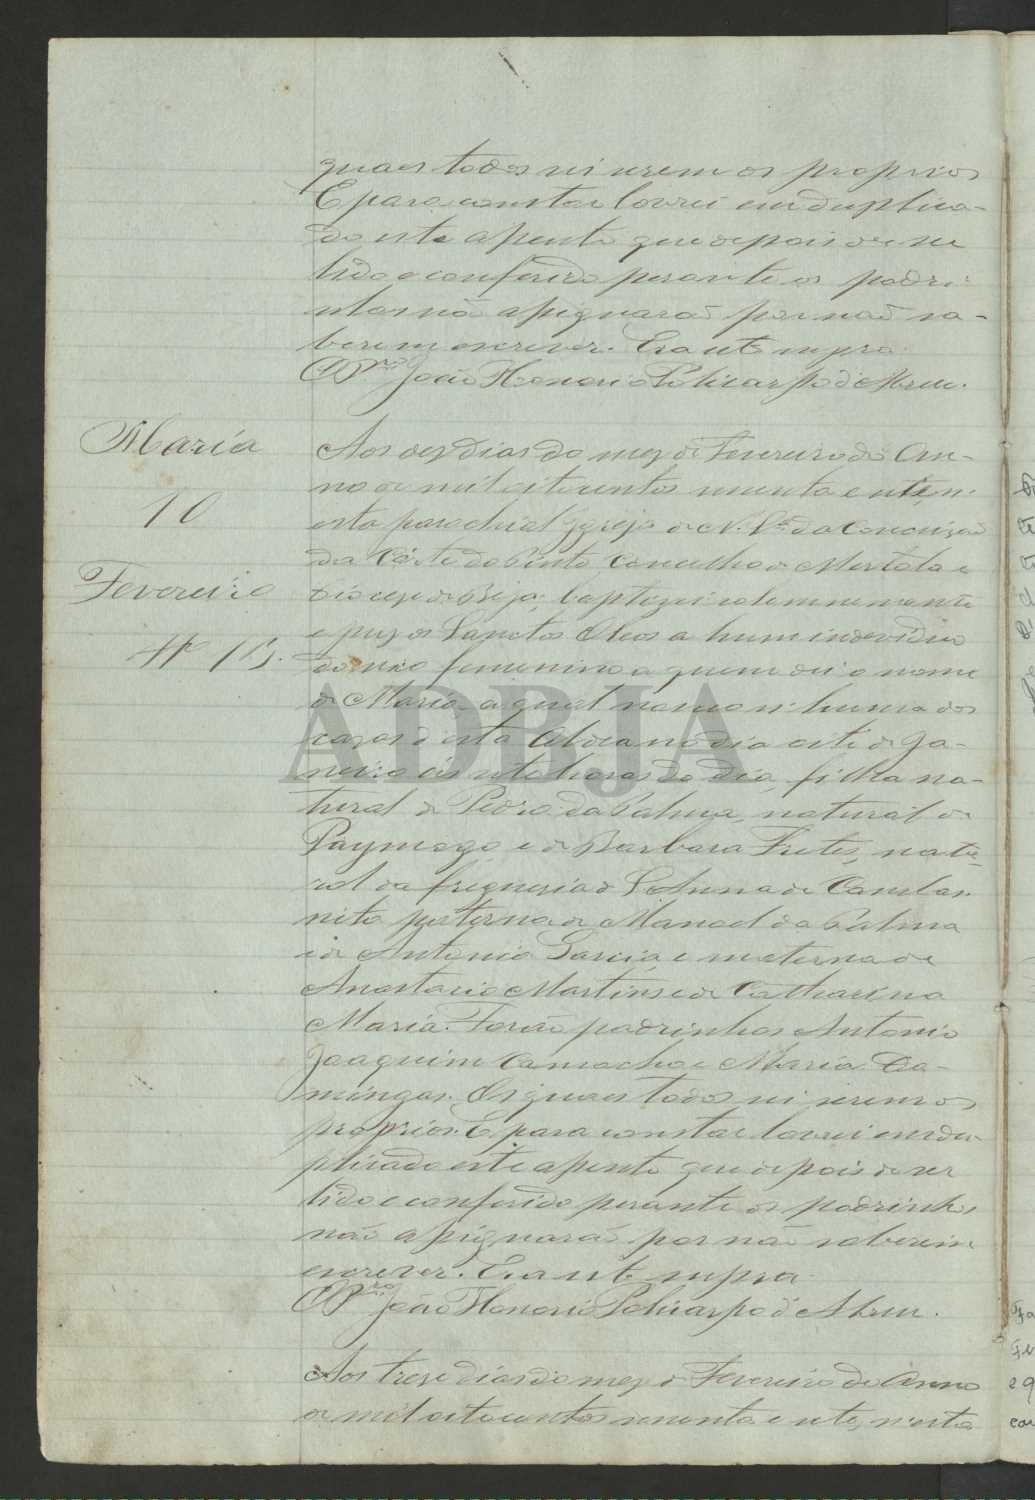 quaes todos sei serem os proprios
E para constar lavrei em duplica-
do este assento que depois de ser
lido e conferido perante os padri-
nhos não assignarão por não sa-
berem escrever. Era ut supra.
O Pr.º João Honorio Policarpo d'Abreu.
Maria
10
Fevereiro
Nº 15.
Aos dez dias do mez de Fevereiro do An-
no de mil oitocentos secenta e sete, n-
esta parochial Igreja de N. Srª da Conceição
da Côrte do Pinto, Concelho de Mertola e
Diocese de Beja, baptizei solemnemente
e puz os Sanctos Oleos a hum individuo
do sexo femenino a quem dei o nome
de Maria a qual nasceu n'huma das
cazas d'esta Aldea no dia oito de Ja-
neiro ás sete horas do dia, filha na-
tural de Pedro da Palma, natural de
Paymogo e de Barbara Fretes, natu-
ral da freguesia de S. Anna de Cambas.
neta paterna de Manoel da Palma
e de Antonia Garcia, e materna de
Anastacio Martins e de Catharina
Maria. Forão padrinhos Antonio
Joaquim Camacho e Maria Do-
mingas. Os quaes todos sei serem os
proprios. E para constar lavrei em du-
plicado este assento que depois de ser
lido e conferido perante os padrinhos
não assignarão por não saberem
escrever. Era ut supra
O Pr.º João Honorio Policarpo d'Abreu.
Aos treze dias do mez de Fevereiro do Anno
de mil oitocentos secenta e sete, n'esta
ADBJA